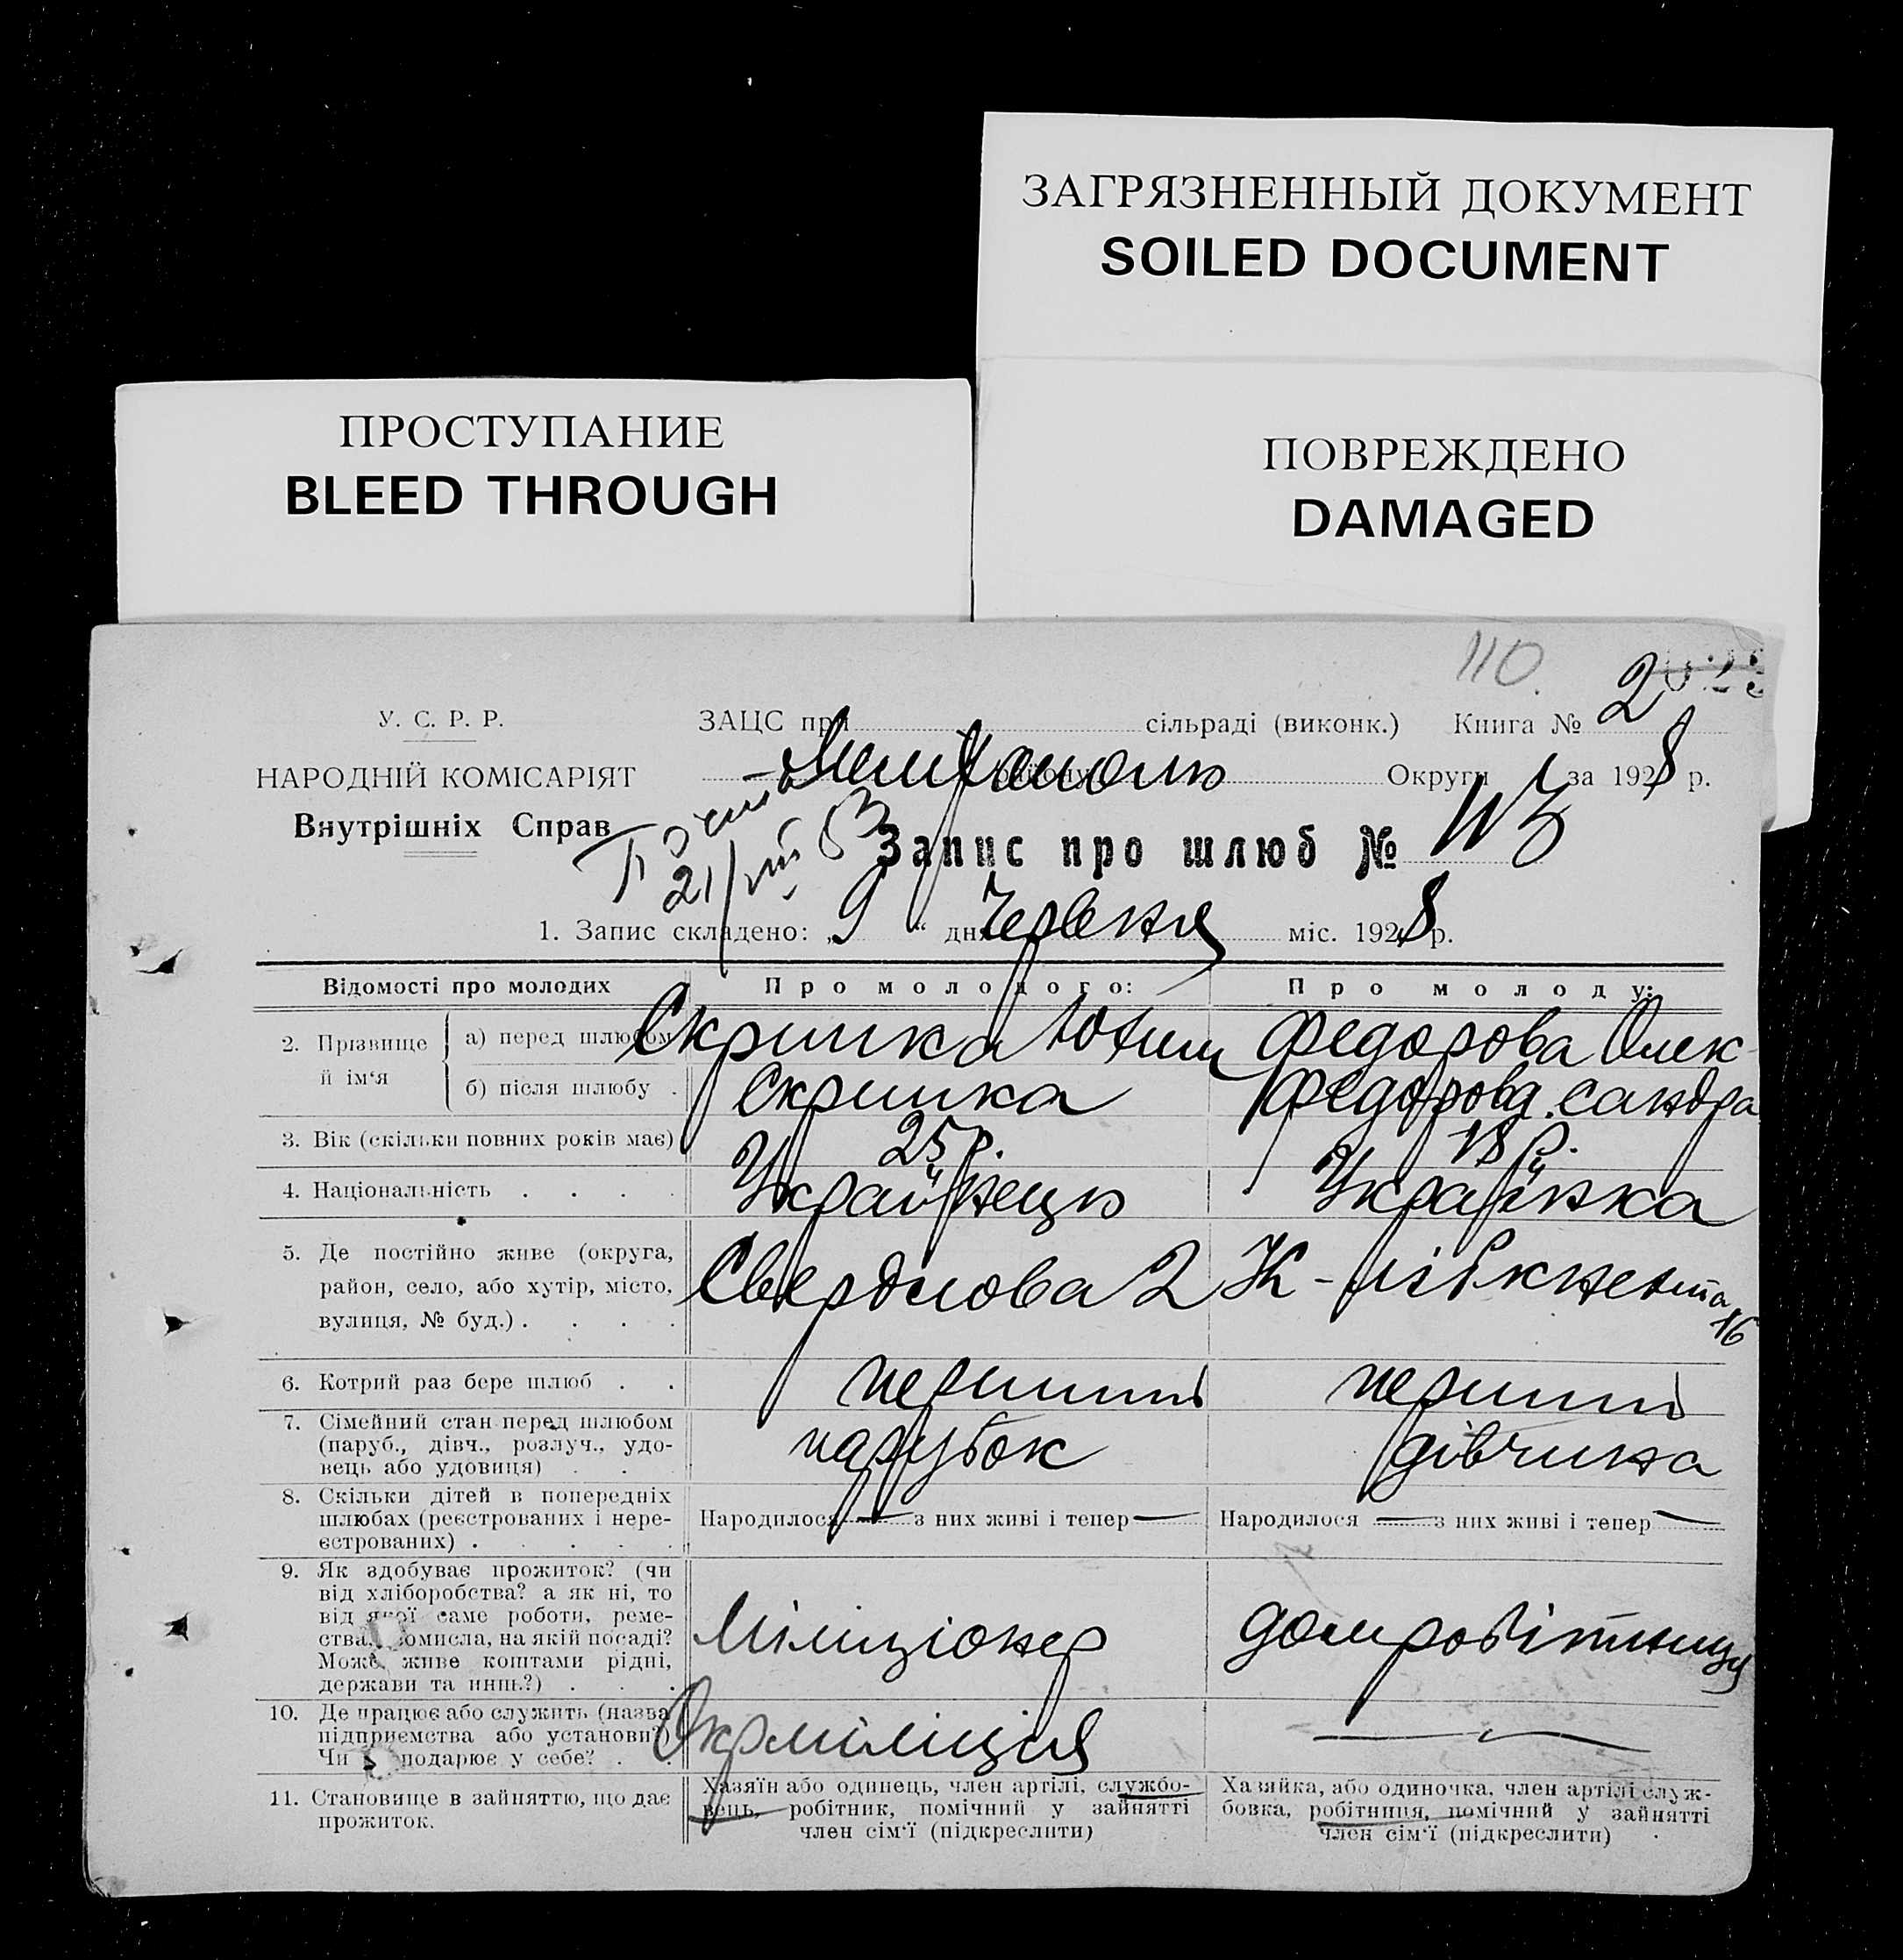 ЗАГРЯЗНЕННЫЙ ДОКУМЕНТ
SOILED DOCUMENT
ПРОСТУПАНИЕ
BLEED THROUGH
ПОВРЕЖДЕНО
DAMAGED
110.
У. С. Р. Р.
НАРОДНІЙ КОМІСАРІЯТ
Внутрішніх Справ
ЗАЦС при сільраді (виконк.) Книга № 2
району Округи за 1928 р.
21/VIII 53
Запис про шлюб № 113
1. Запис складено: „9“ дня Червня міс. 1928 р.
Відомості про молодих Про молодого: Про молоду:
2. Прізвище й ім‘я
а) перед шлюбом Скрипка Юхим Федорова Олек-
б) після шлюбу . Скрипка Федорова. сандра
3. Вік (скільки повних років має) 25 р. 18 р.
4. Національність . . . . Українець Українка
5. Де постійно живе (округа,
район, село, або хутір, місто,
вулиця, № буд.) . . . . Свердлова 2 К-Лібкнехта 16
6. Котрий раз бере шлюб . . перший перший
7. Сімейний стан перед шлюбом
(паруб., дівч., розлуч., удо-
вець або удовиця) . . парубок дівчина
8. Скільки дітей в попередніх
шлюбах (реєстрованих і нере-
єстрованих) . . . . . Народилося — з них живі і тепер — Народилося — з них живі і тепер —
9. Як здобуває прожиток? (чи
від хліборобства? а як ні, то
від якої саме роботи, реме-
ства, промисла, на якій посаді?
Може живе коштами рідні,
держави та инш.?) . . . Міліціонер домробітниця
10. Де працює або служить (назва
підприємства або установи?)
Чи господарює у себе? . . Окрміліція —
11. Становище в зайняттю, що дає
прожиток.
Хазяїн або одинець, член артілі, службо-
вець, робітник, помічний у зайнятті
член сім‘ї (підкреслити)
Хазяйка, або одиночка, член артілі служ-
бовка, робітниця, помічний у зайнятті
член сім‘ї (підкреслити)